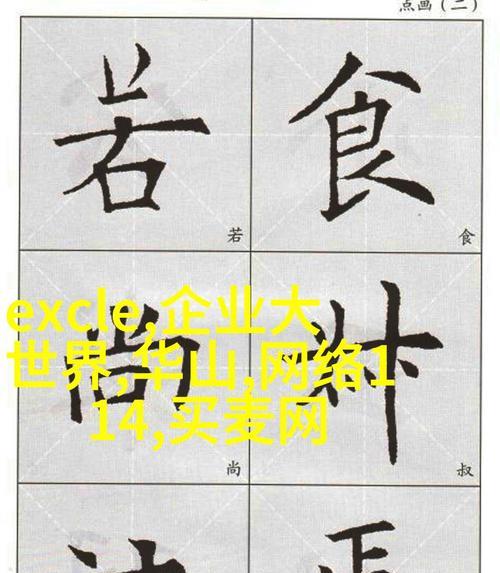 点画（二）
若 食
若 食
excle,企业大
世界,华山,网络1
14,买麦网
尚 叔
尚 叔